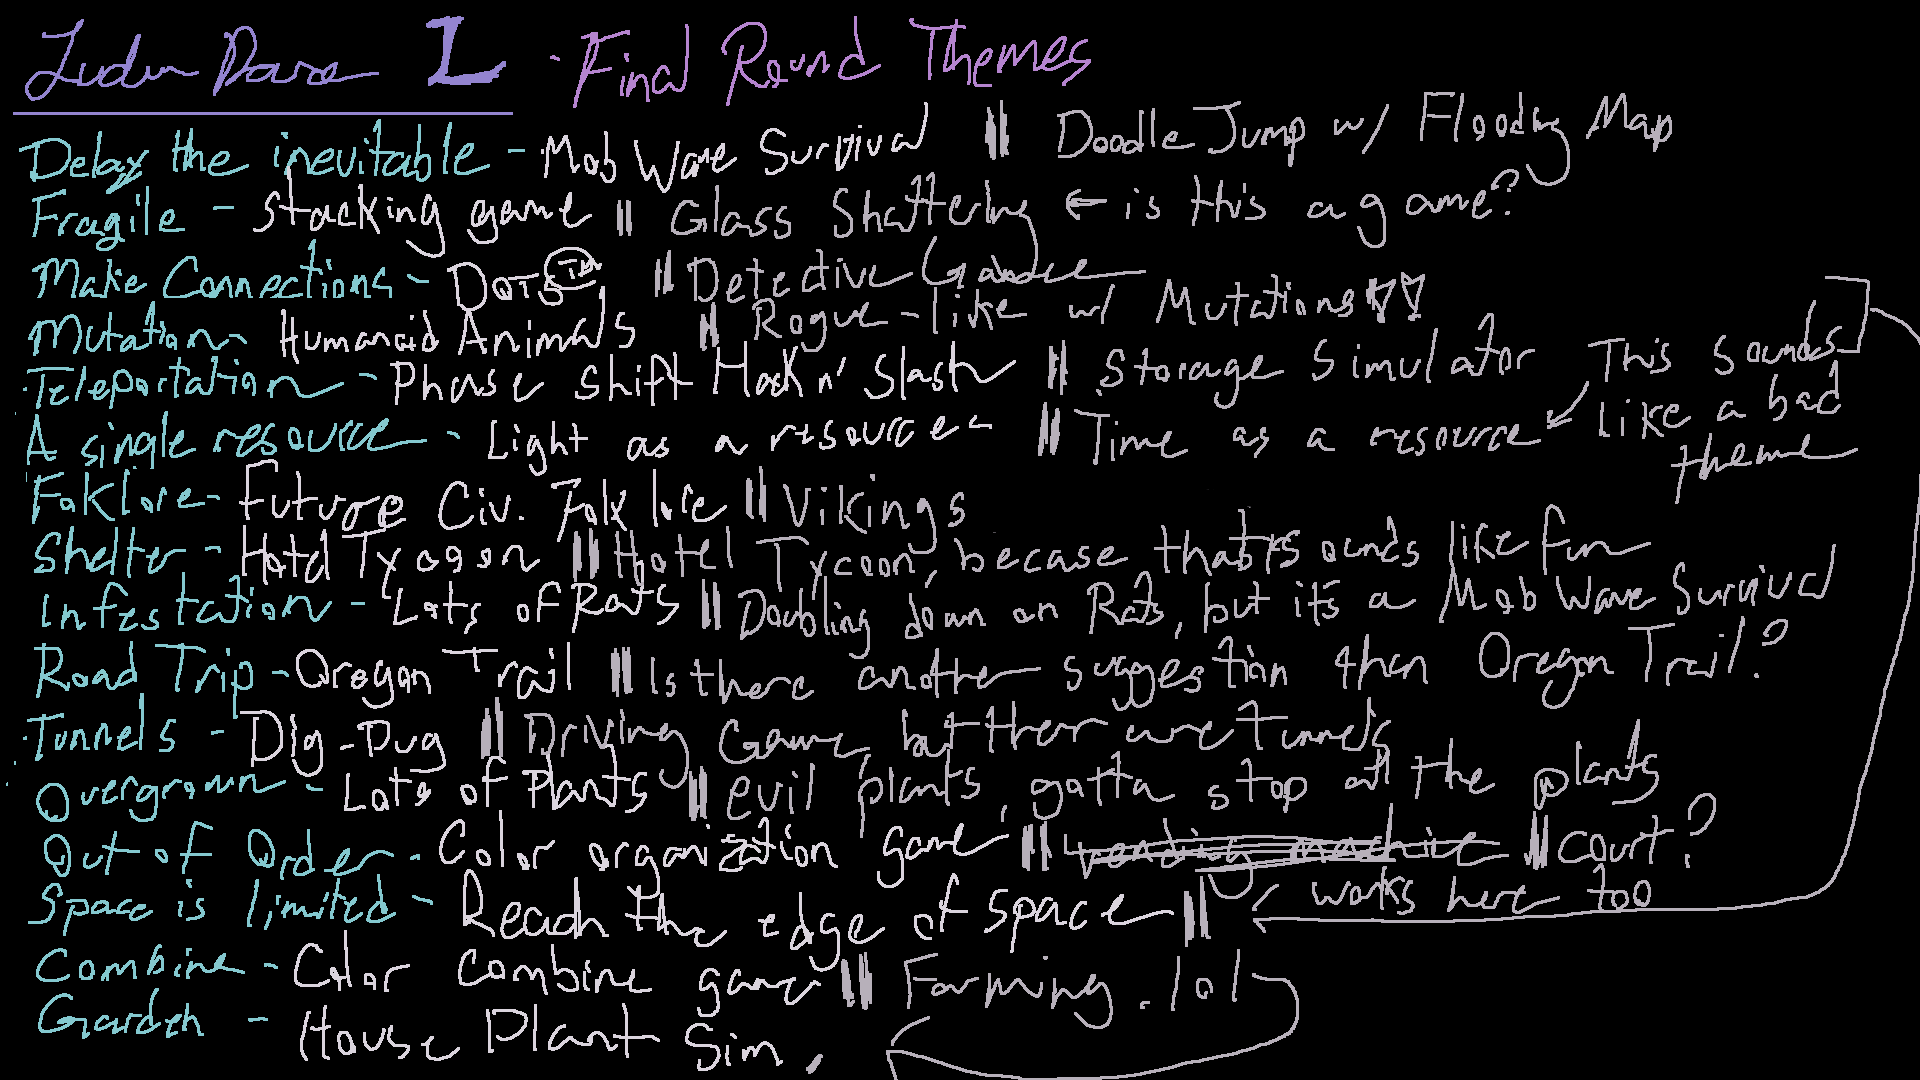 Ludum Dare L - Final Round Themes
Delay the inevitable - Mob Wave Survival || Doodle Jump w/ Flooding Map
Fragile - Stacking game || Glass Shattering ← is this a game?
Make Connections - DOTS TM || Detective Game
Mutation - Humanoid Animals || Rogue-like w/ Mutations
Teleportation - Phase Shift Hack n' Slash || Storage Simulator
A single resource - Light as a resource || Time as a resource ← This sounds like a bad theme
Foklore - Future Civ. Folklore || Vikings
Shelter - Hotel Tycoon || Hotel Tycoon, becase that sounds like fun
Infestation - Lots of Rats || Doubling down on Rats, but it's a Mob Wave Survival
Road Trip - Oregon Trail || Is there another suggestion than Oregon Trail?
Tunnels - Dig-Dug || Driving Game, but there are tunnels
Overgrown - Lots of Plants || evil plants, gotta stop all the plants
Out of Order - Color organization game || vending machine || court?
Space is limited - Reach the edge of space || works here too
Combine - Color combine game || Farming. lol
Garden - House Plant Sim.